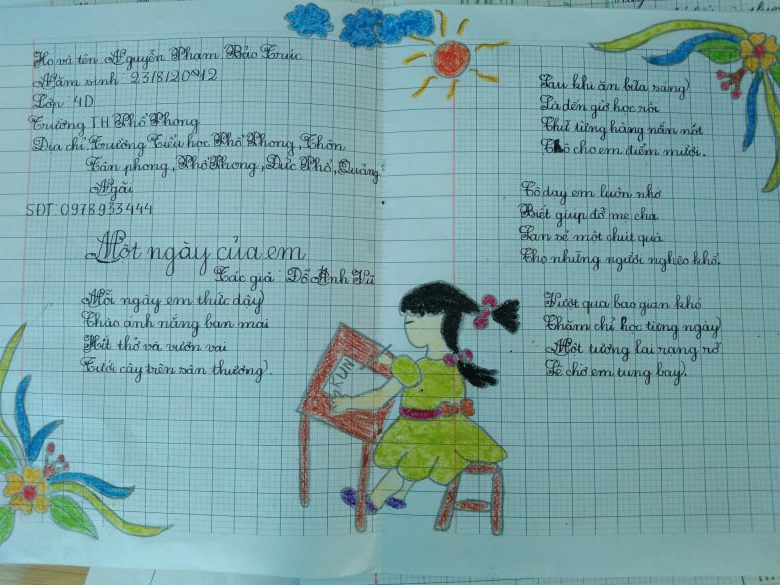 Họ và tên Nguyễn Phạm Bảo Trúc
Năm sinh: 23/8/2012
Lớp: 4D
Trường TH Phổ Phong
Địa chỉ: Trường Tiểu học Phổ Phong, Thôn
Tân phong, Phổ Phong, Đức Phổ, Quảng
Ngãi
SĐT: 0978933444
Một ngày của em
Tác giả: Đỗ Anh Vũ
Mỗi ngày em thức dậy
Chào ánh nắng ban mai
Hít thở và vươn vai
Tưới cây trên sân thượng.
KUMI
Sau khi ăn bữa sáng
Là đến giờ học rồi
Chữ từng hàng nắn nót
Cô cho em điểm mười.
Cô dạy em luôn nhớ
Biết giúp đỡ mẹ cha
San sẻ một chút quà
Cho những người nghèo khổ.
Vượt qua bao gian khó
Chăm chỉ học từng ngày
Một tương lai rạng rỡ
Sẽ chờ em tung bay.